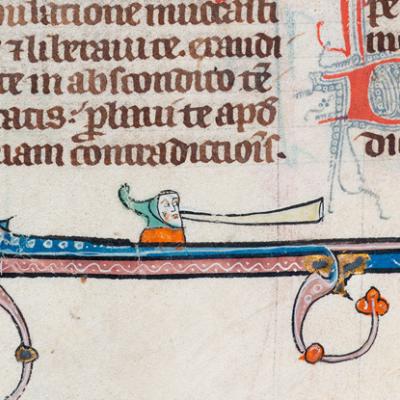 bulatione inuocasti pe
⁊ liberaui te. exaudi
te in abscondito tē
tatis: ꝓbaui te apđ
uam contradictiōis. di